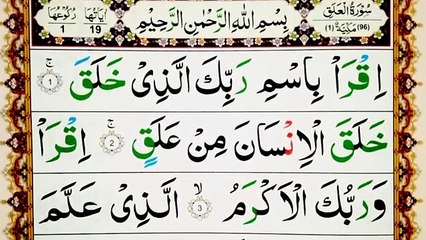 سُوْرَةُ الْعَلَقِ
(96) مَكِّيَّةٌ (1)
بِسْمِ اللّٰهِ الرَّحْمٰنِ الرَّحِيْمِ
اٰيَاتُهَا 19
رُكُوْعُهَا 1
اِقْرَاْ بِاسْمِ رَبِّكَ الَّذِیْ خَلَقَ ۚ ﴿1﴾
خَلَقَ الْاِنْسَانَ مِنْ عَلَقٍ ۚ ﴿2﴾ اِقْرَاْ
وَرَبُّكَ الْاَكْرَمُ ۙ ﴿3﴾ الَّذِیْ عَلَّمَ